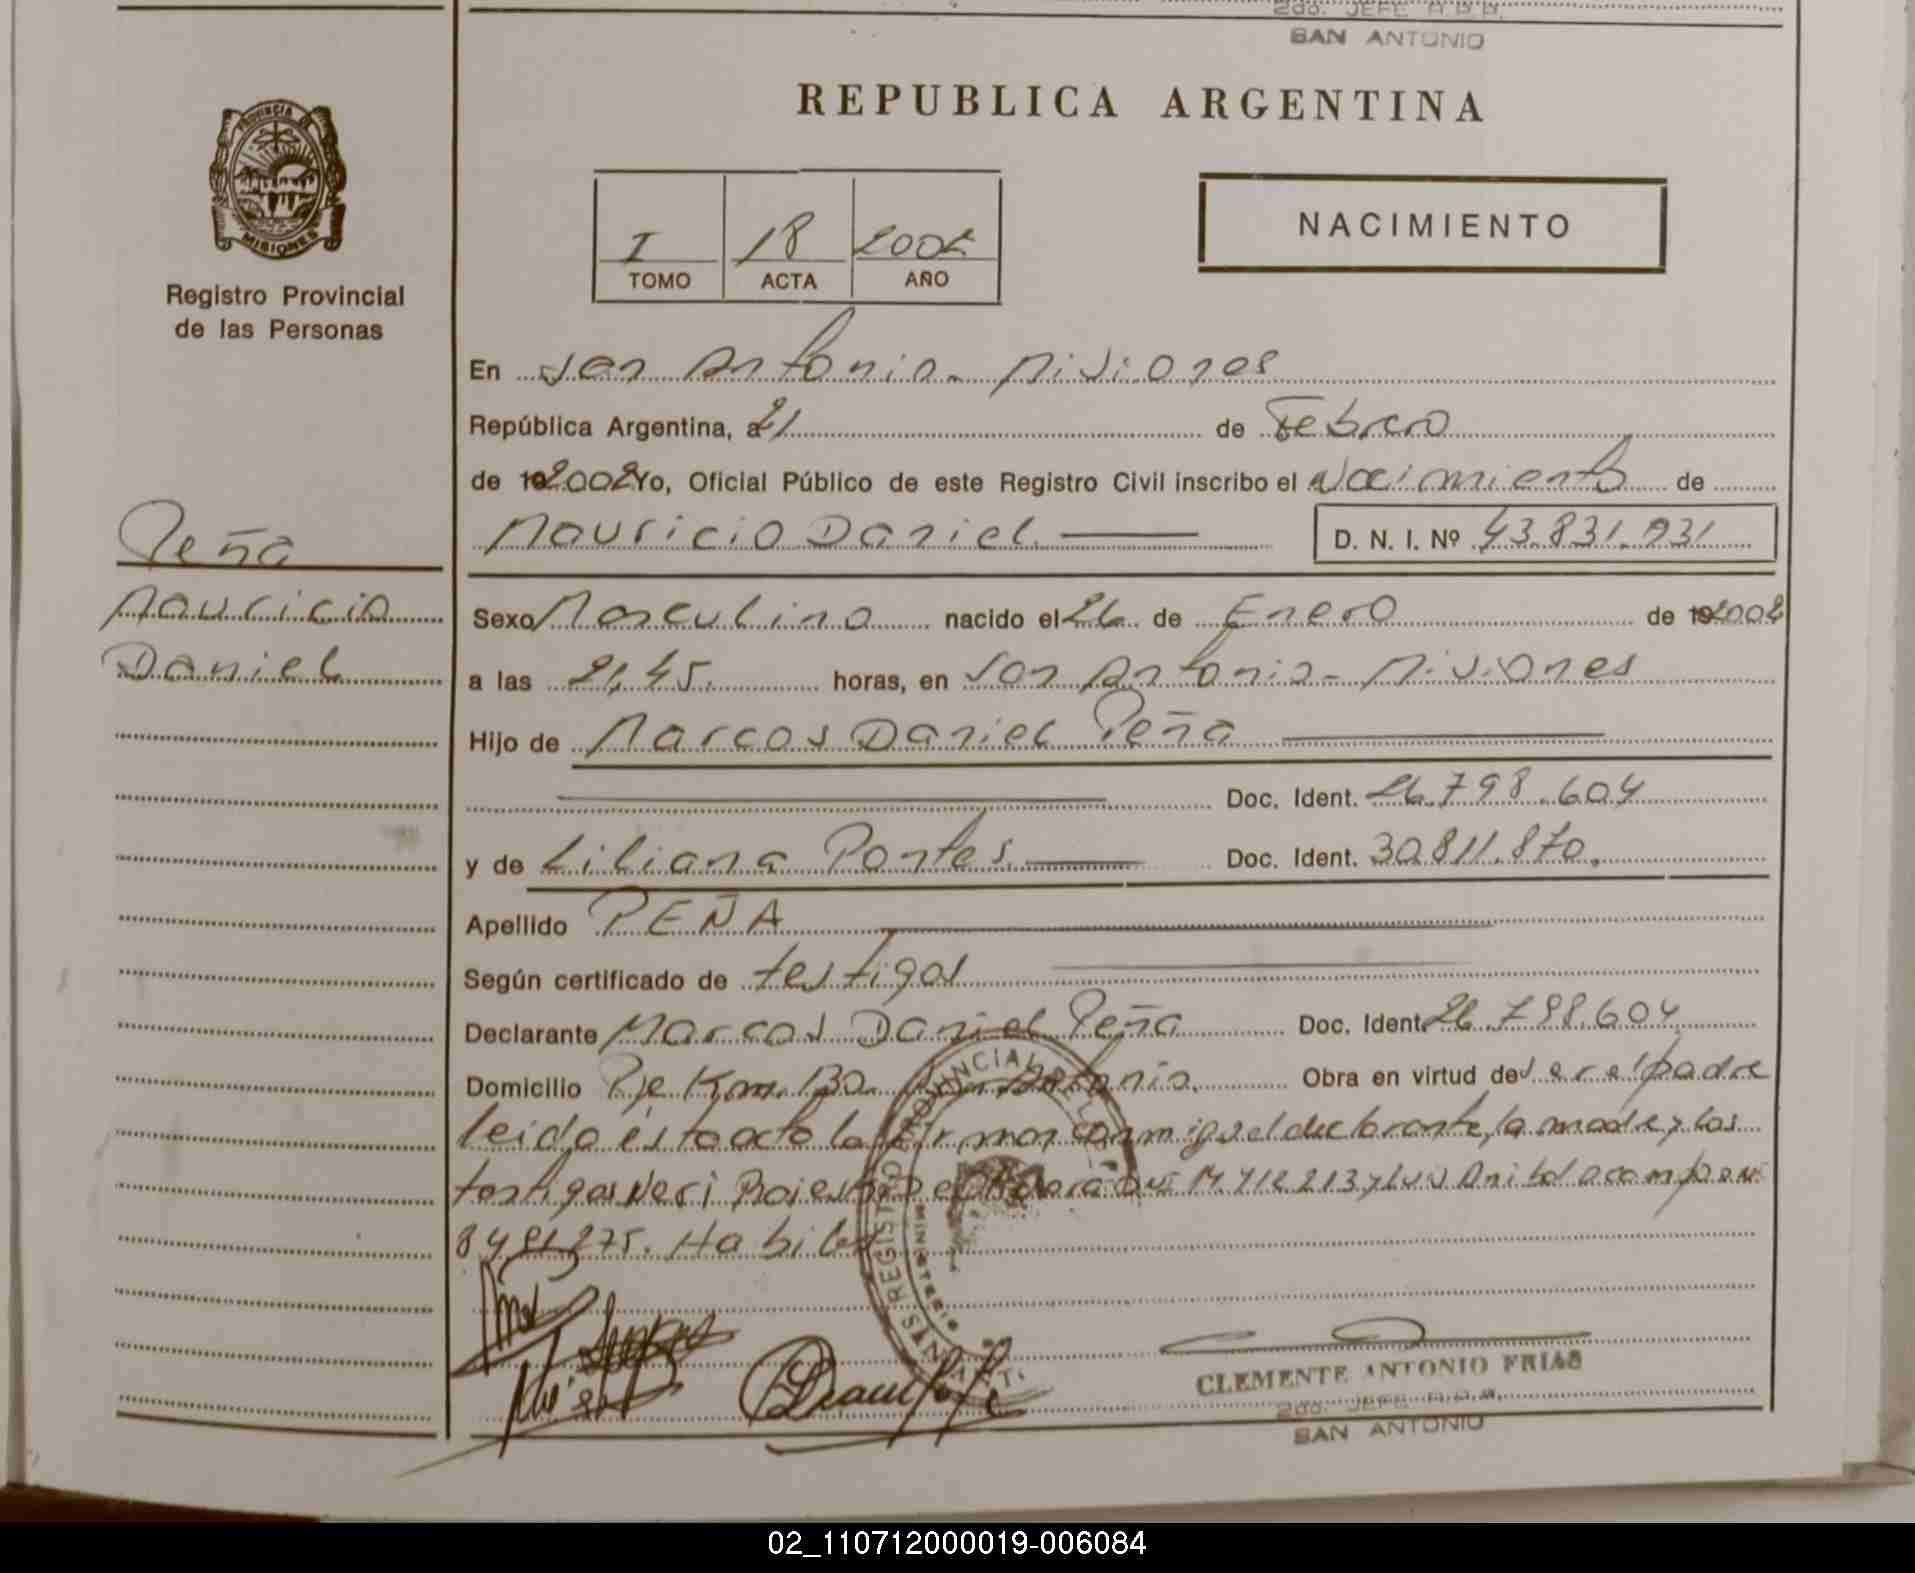 2do. JEFE R.P.P.
SAN ANTONIO
REPUBLICA ARGENTINA
PROVINCIA D MISIONES
Registro Provincial
de las Personas
I 18 2002
TOMO ACTA AÑO
NACIMIENTO
En San Antonio - Misiones
República Argentina, a 21 de Febrero
de 19 2002 Yo, Oficial Público de este Registro Civil inscribo el Nacimiento de
Mauricio Daniel D. N. I. Nº 43.831.931
Peña
Mauricio
Daniel
Sexo Masculino nacido el 26 de Enero de 19 2002
a las 21,45. horas, en San Antonio - Misiones
Hijo de Marcos Daniel Peña
Doc. Ident. 26.798.604
y de Liliana Portes Doc. Ident. 30.811.870.
Apellido PEÑA
Según certificado de testigos
Declarante Marcos Daniel Peña Doc. Ident. 26.798.604
Domicilio Pje Km. 130. San Antonio. Obra en virtud de ser el padre
leido esto acto la firman conmigo el declarante, la madre y los
testigos Neri DNI M 7.112.213 y Luis
8481275. Habiles
REGISTRO PROVINCIAL DE LAS
MINISTERIO
CLEMENTE ANTONIO FRIAS
2do. JEFE R.P.P.
SAN ANTONIO
02_110712000019-006084